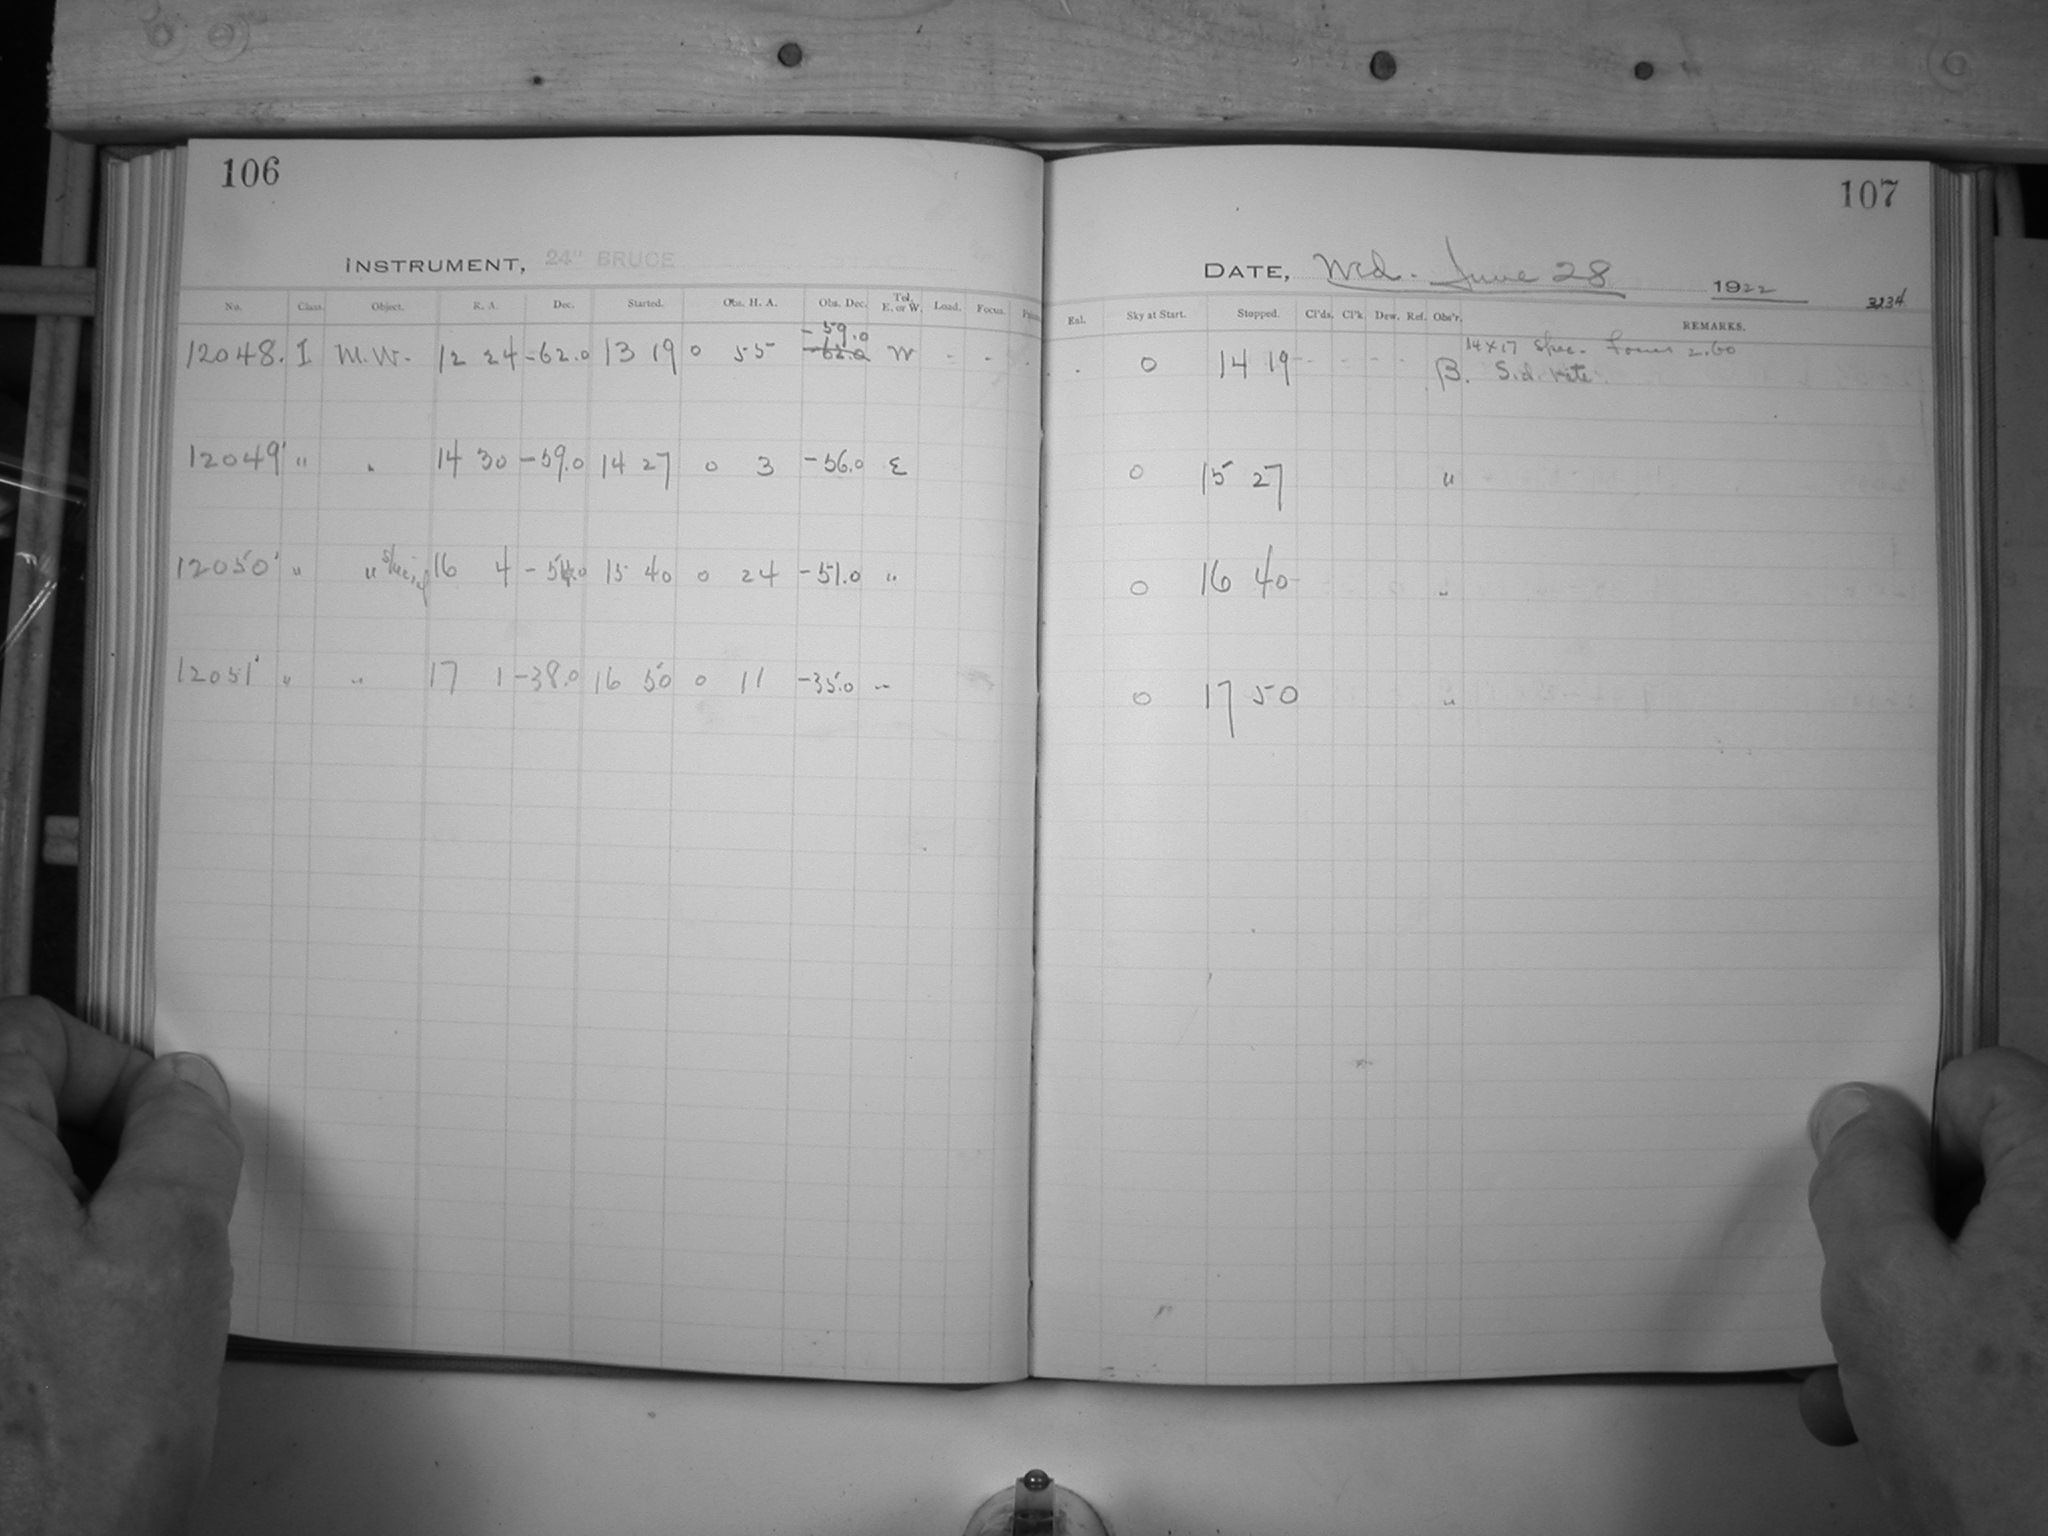 106
107
INSTRUMENT, 24" BRUCE
DATE, Wed. June 28 1922
3134
No. Class. Object. R. A. Dec. Started. Obs. H. A. Obs. Dec. Tel. E. or W. Load. Focus.
Eal. Sky at Start. Stopped. Cl'ds. Cl'k. Dew. Ref. Obs'r. REMARKS.
12048. I M.W. 12 24 -62.0 13 19 0 55 -59.0 -62.0 W - - . . 0 14 19 - - - - B. 14x17 Spec. Focus 2.60
S.d. rate
12049' " " 14 30 -59.0 14 27 0 3 -56.0 E 0 15 27 "
12050' " " 16 4 -54.0 15 40 0 24 -51.0 " 0 16 40 "
12051' " " 17 1 -38.0 16 50 0 11 -35.0 " 0 17 50 "